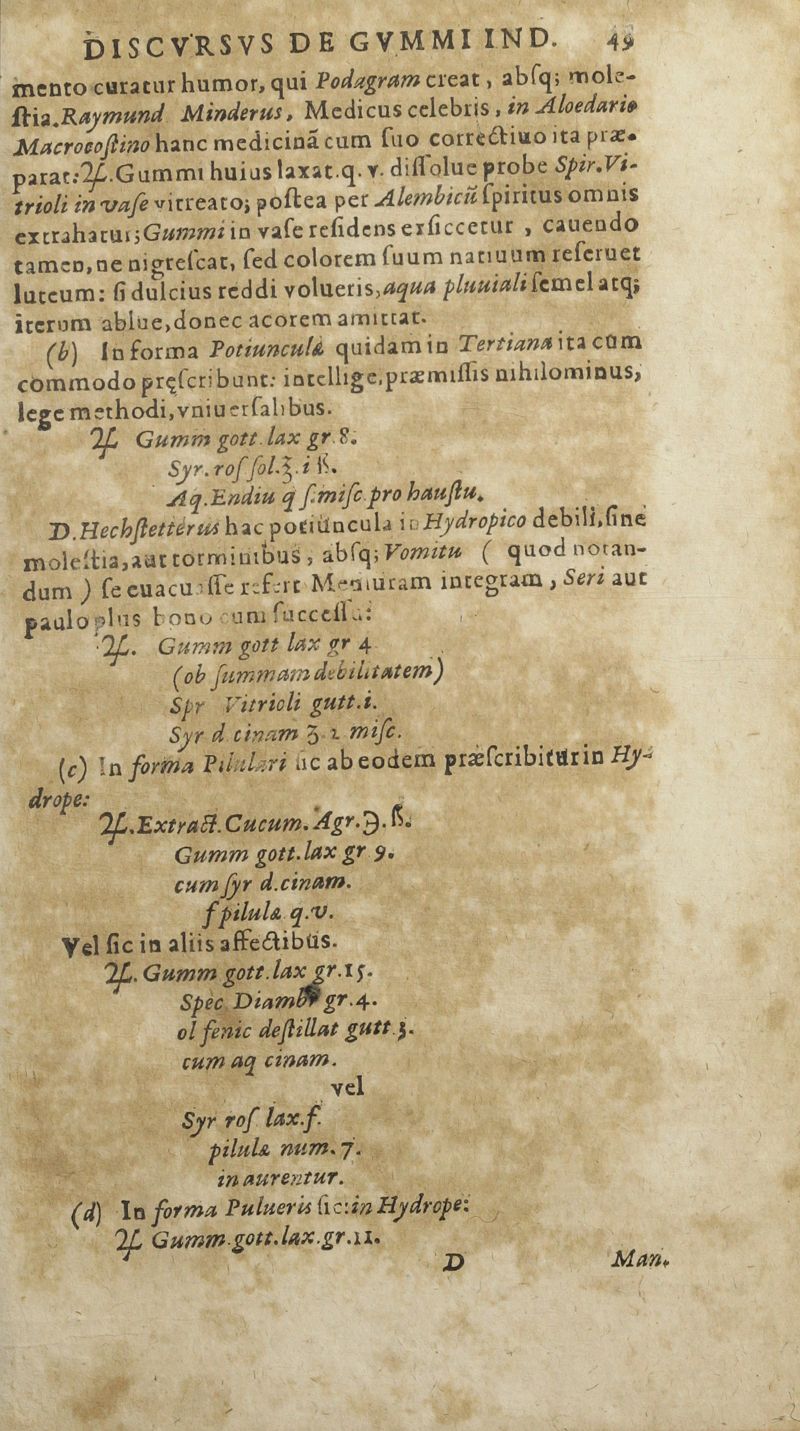 DISCVRSVS DE GVMMI IND. 49
mento curatur humor, qui Podagram creat, abſq; mole-
ſtia. Raymund Minderus, Medicus celebris, in Aloedario
Macrocoſtino hanc medicinã cum ſuo correctiuo ita præ-
parat: ♃. Gummi huius laxat. q. v. diſſolue probe Spir. Vi-
trioli in vaſe vitreato; poſtea per Alembicũ ſpiritus omnis
extrahatur; Gummi in vaſe reſidens exſiccetur, cauendo
tamen, ne nigreſcat, ſed colorem ſuum natiuum reſeruet
luteum: ſi dulcius reddi volueris, aqua pluuiali ſemel atq;
iterum ablue, donec acorem amittat.
(b) In forma Potiunculæ quidam in Tertiana ita cũm
commodo pręſcribunt: intellige, præmiſſis nihilominus,
lege methodi, vniuerſalibus.
♃ Gumm gott. lax gr. 8.
Syr. roſ ſol. ℥. i ß.
Aq. Endiu q ſ. miſc. pro hauſtu.
D. Hechſtetterus hac potiuncula in Hydropico debili, ſine
moleſtia, aut torminibus, abſq; Vomitu ( quod notan-
dum ) ſe euacuaſſe refert Menſuram integram, Seri aut
paulo plus bono cum ſucceſſu:
♃. Gumm gott lax gr 4
(ob ſummam debilitatem)
Spr Vitrioli gutt. i.
Syr d cinam ʒ. 1 miſc.
(c) In forma Pilulari ſic ab eodem præſcribitur in Hy-
drope:
♃. Extract. Cucum. Agr. ℈. ß.
Gumm gott. lax gr 9.
cum ſyr d. cinam.
f pilulæ q. v.
Vel ſic in aliis affectibus.
♃. Gumm gott. lax gr. 15.
Spec Diambr gr. 4.
ol fenic deſtillat gutt. 3.
cum aq cinam.
vel
Syr roſ lax. f.
pilulæ num. 7.
inaurentur.
(d) In forma Pulueris ſic: in Hydrope:
♃ Gumm. gott. lax. gr. 11.
D Man.